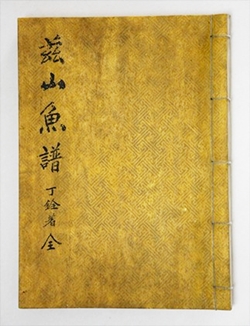 玆山魚譜 丁銓著 全